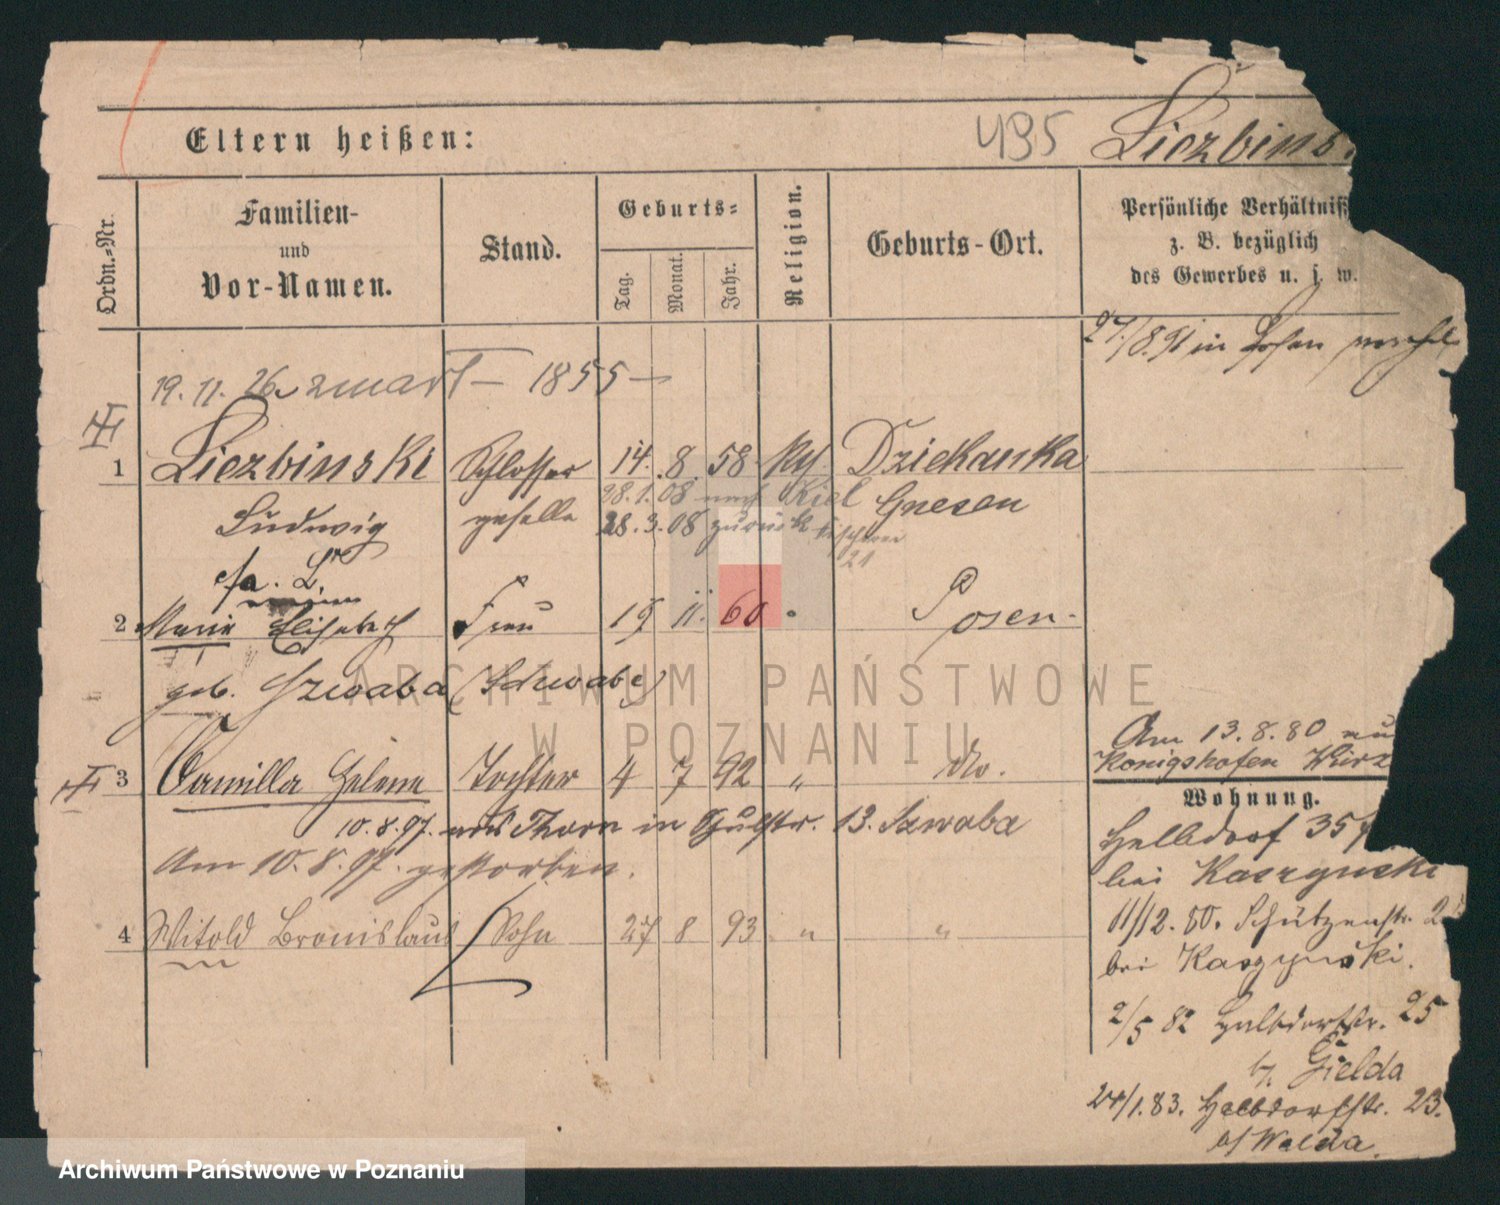 Eltern heißen:
495
Liczbins
Ordn.-Nr.
Familien-
und
Vor-Namen.
Stand.
Geburts-
Tag.
Monat.
Jahr.
Religion.
Geburts-Ort.
Persönliche Verhältniß
z. B. bezüglich
des Gewerbes u. s. w.
27./8.91 in Posen
19. 11. 26 1855
1 Liczbinski Schlosser 14. 8. 58 Dziekanka
Ludwig geselle 28.1.08 nach Kiel Gnesen
28.3.08 zurück
21
2 Marie Elisabeth Frau 19 11. 60 Posen.
geb. Szwaba (Schwabe)
3 Camilla Helene Tochter 4 7 92 " do.
10.8.97. aus Thorn in 13. Szwaba
Am 10.8.97. gestorben.
4 Witold Bronislaus Sohn 27 8 93 " "
Am 13.8.80 aus
Königshofen Wirz
Wohnung.
Halbdorf 35
bei Kaczynski
11/12.80. Schützenstr. 2
bei Kaczynski.
2/5 82 Halbdorfstr. 25
b. Gielda
24/1.83. Halbdorfstr. 23.
b/ Walda.
ARCHIWUM PAŃSTWOWE
W POZNANIU
Archiwum Państwowe w Poznaniu